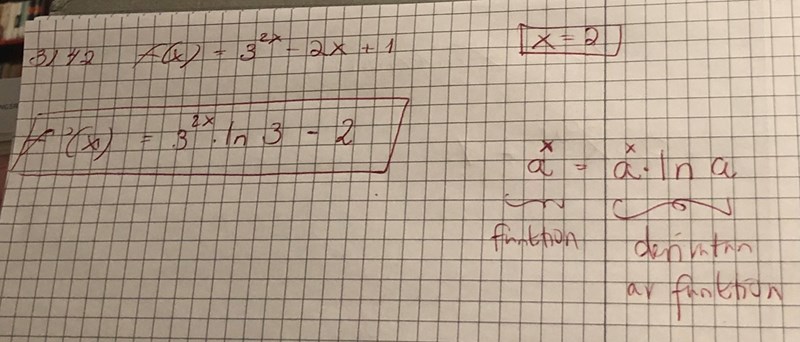 3142 f(x) = 3^2x - 2x + 1
x = 2
f'(x) = 3^2x · ln 3 - 2
a^x = a^x · ln a
funktion
derivatan
av funktion